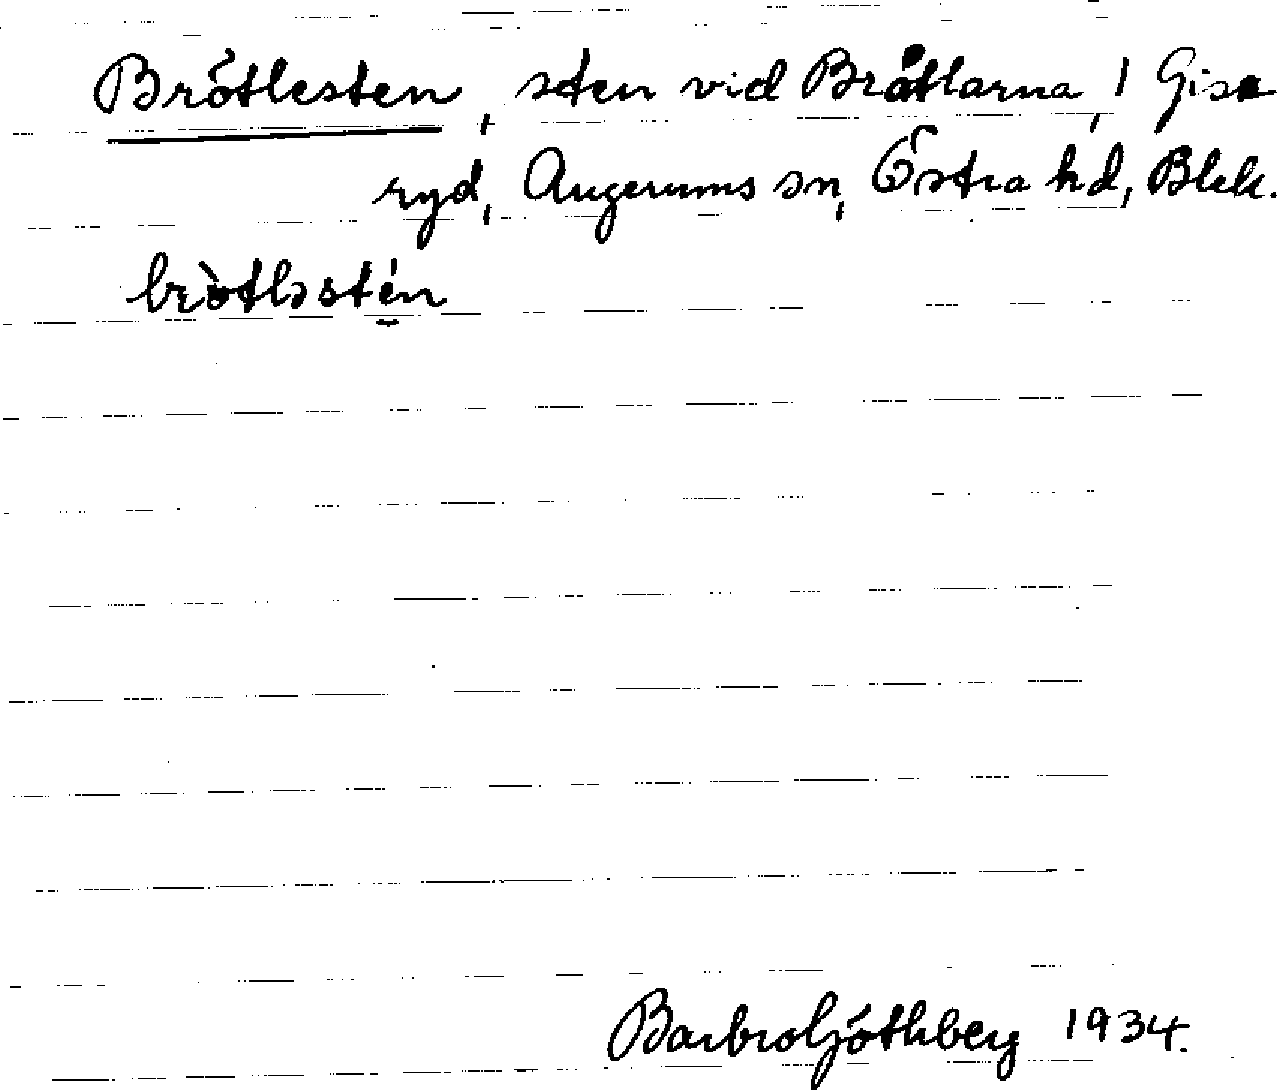 Brötlesten, sten vid Bråtlarna, i Gise
ryd, Augerums sn, Östra hd, Blek.
bròtləstén
Barbro Göthberg 1934.